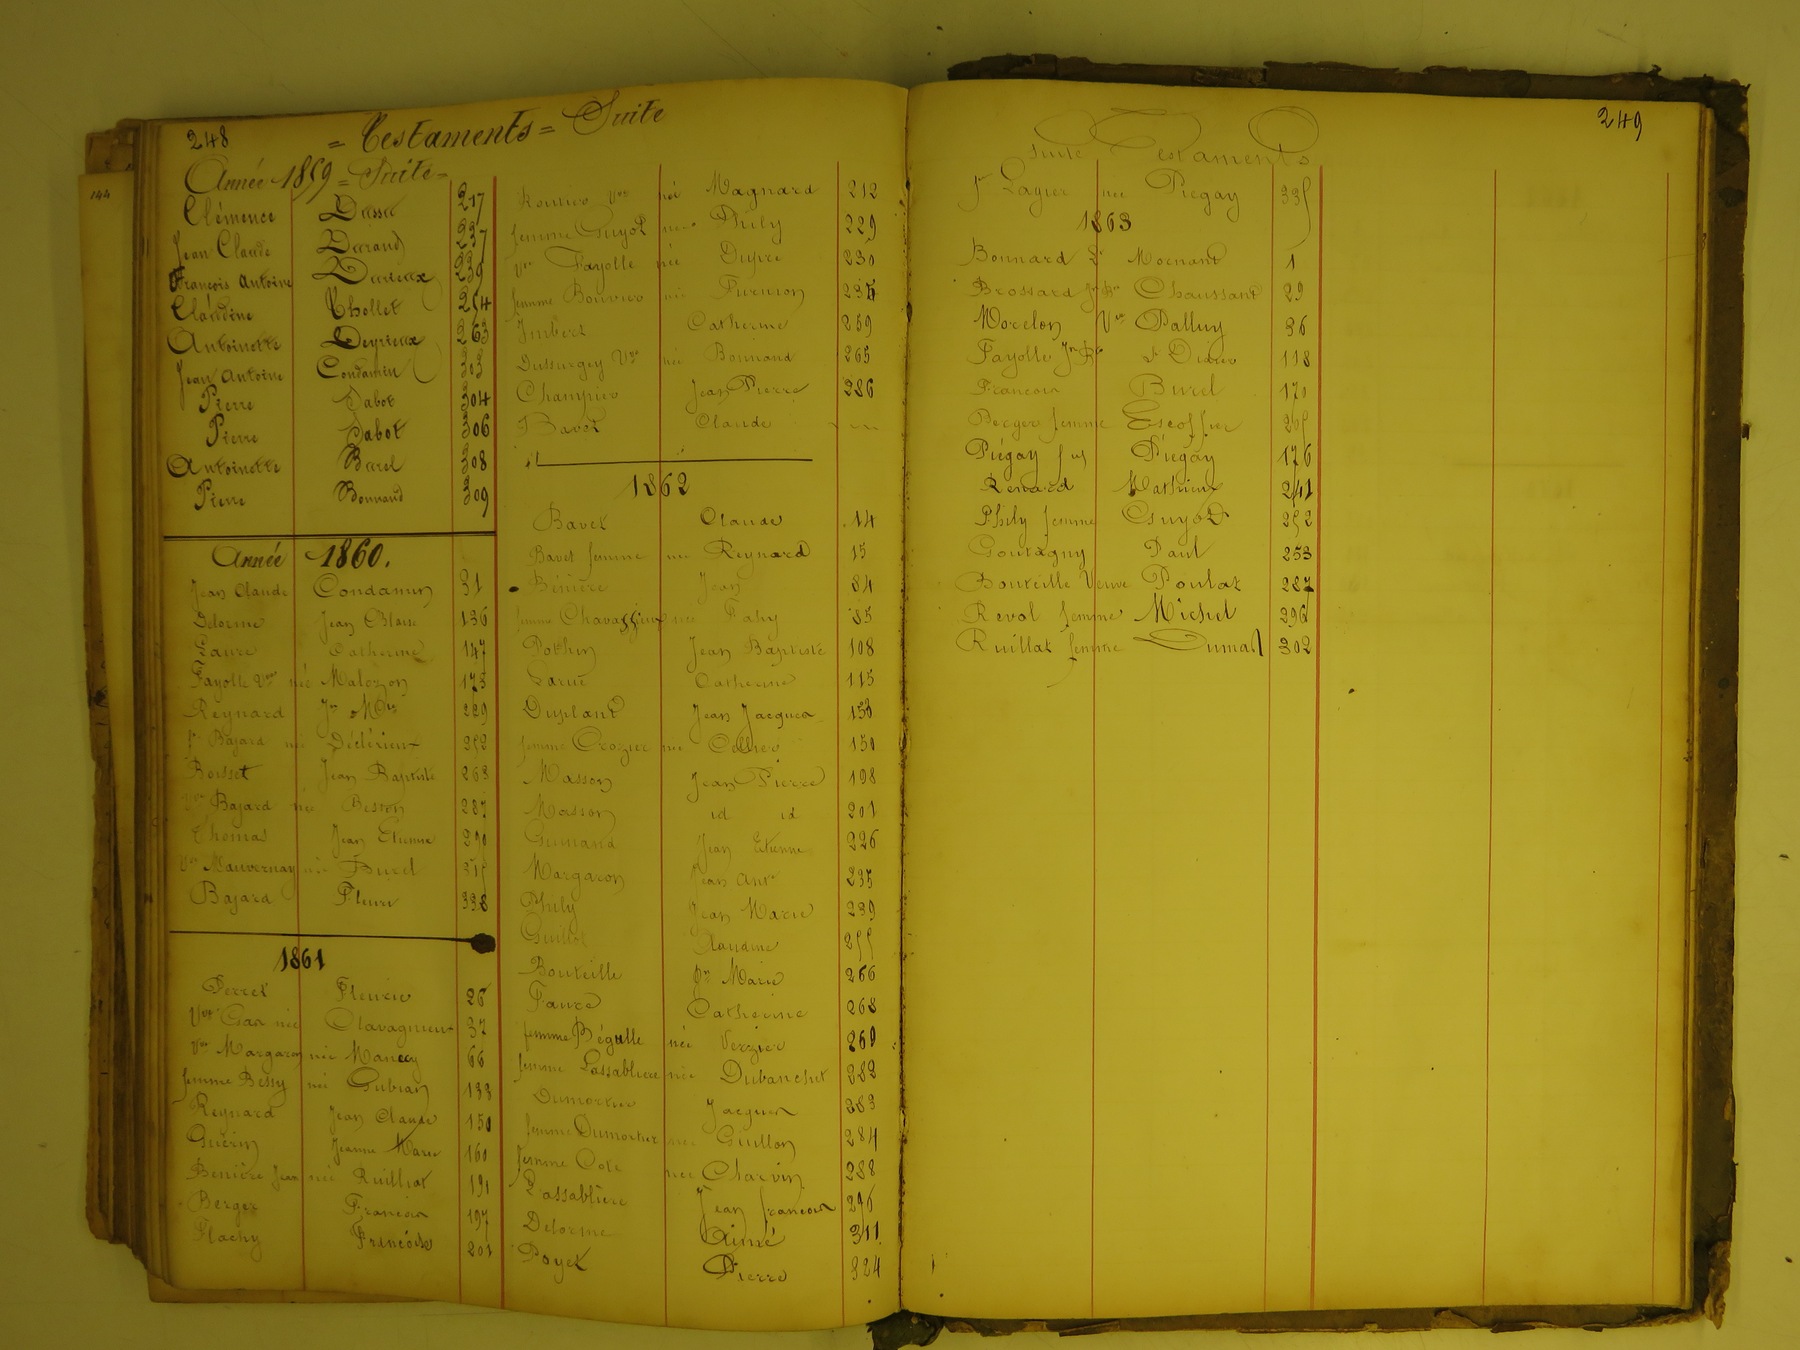 144
248
= Testaments = Suite
Année 1859 = Suite =
Clémence 217
Jean Claude Durand 237
François Antoine 239
Claudine Chollet 254
Antoinette Deyrieux 263
Jean Antoine Condamin 303
Pierre Dabot 304
Pierre Dabot 306
Antoinette Burel 308
Pierre Bonnand 309
Année 1860.
Jean Claude Condamin 31
Delorme Jean Blaise 136
Catherine 147
Fayolle Vve née Malozon 175
Reynard 229
fe Bajard née 252
Boisset Jean Baptiste 263
Vve Bajard née Besson 287
Thomas Jean Etienne 290
Vve Mauvernay née Burel 315
Bajard Fleury 338
1861
Perret Fleurie 26
Vve née Clavagnieux 37
Vve Margaron née Mancey 66
femme Bessy née Gubian 133
Reynard Jean Claude 150
Guérin Jeanne Marie 160
Benière Jean née Ruilliat 191
Berger François 197
Flachy François 201
Vve née Magnard 212
femme Guyot née Phily 229
Vve Fayolle née Dupré 230
femme Bouvier née 235
Imbert Catherine 259
Dussurgey Vve née Bonnand 265
Champier Jean Pierre 286
Bavet Claude
1862
Bavet Claude 14
Bavet femme née Reynard 15
Bénière Jean 34
femme Chavassieux née Fahy 35
Pothin Jean Baptiste 108
Catherine 115
Duplant Jean Jacques 150
femme Crozier née Cellier 150
Masson Jean Pierre 198
Masson id id 201
Guinand Jean Etienne 226
Margaron Jean Ant. 235
Phily Jean Marie 239
Guillot Claudine 255
Bouteille Marie 266
Faure Catherine 268
femme Bégulle née Verzier 269
femme Lassablière née Dubanchet 282
Dumortier Jacques 283
femme Dumortier née Guillon 284
femme Cote née Charvin 288
Lassablière Jean François 296
Delorme Aimé 311
Poyet Pierre 324
249
suite Testaments
fe Layier née Piegay 335
1863
Bonnard Mornand 1
Brossard Chaussant 29
Morelon Vve Palluy 36
Fayolle Jn Bte 118
François Burel 170
Berger femme Escoffier 265
Piégay Piégay 176
Renard Mathieu 241
Phily femme Guyot 252
Goutagny Paul 253
Bouteille Veuve Poulat 287
Revol femme Michel 296
Ruillat femme Dumas 302